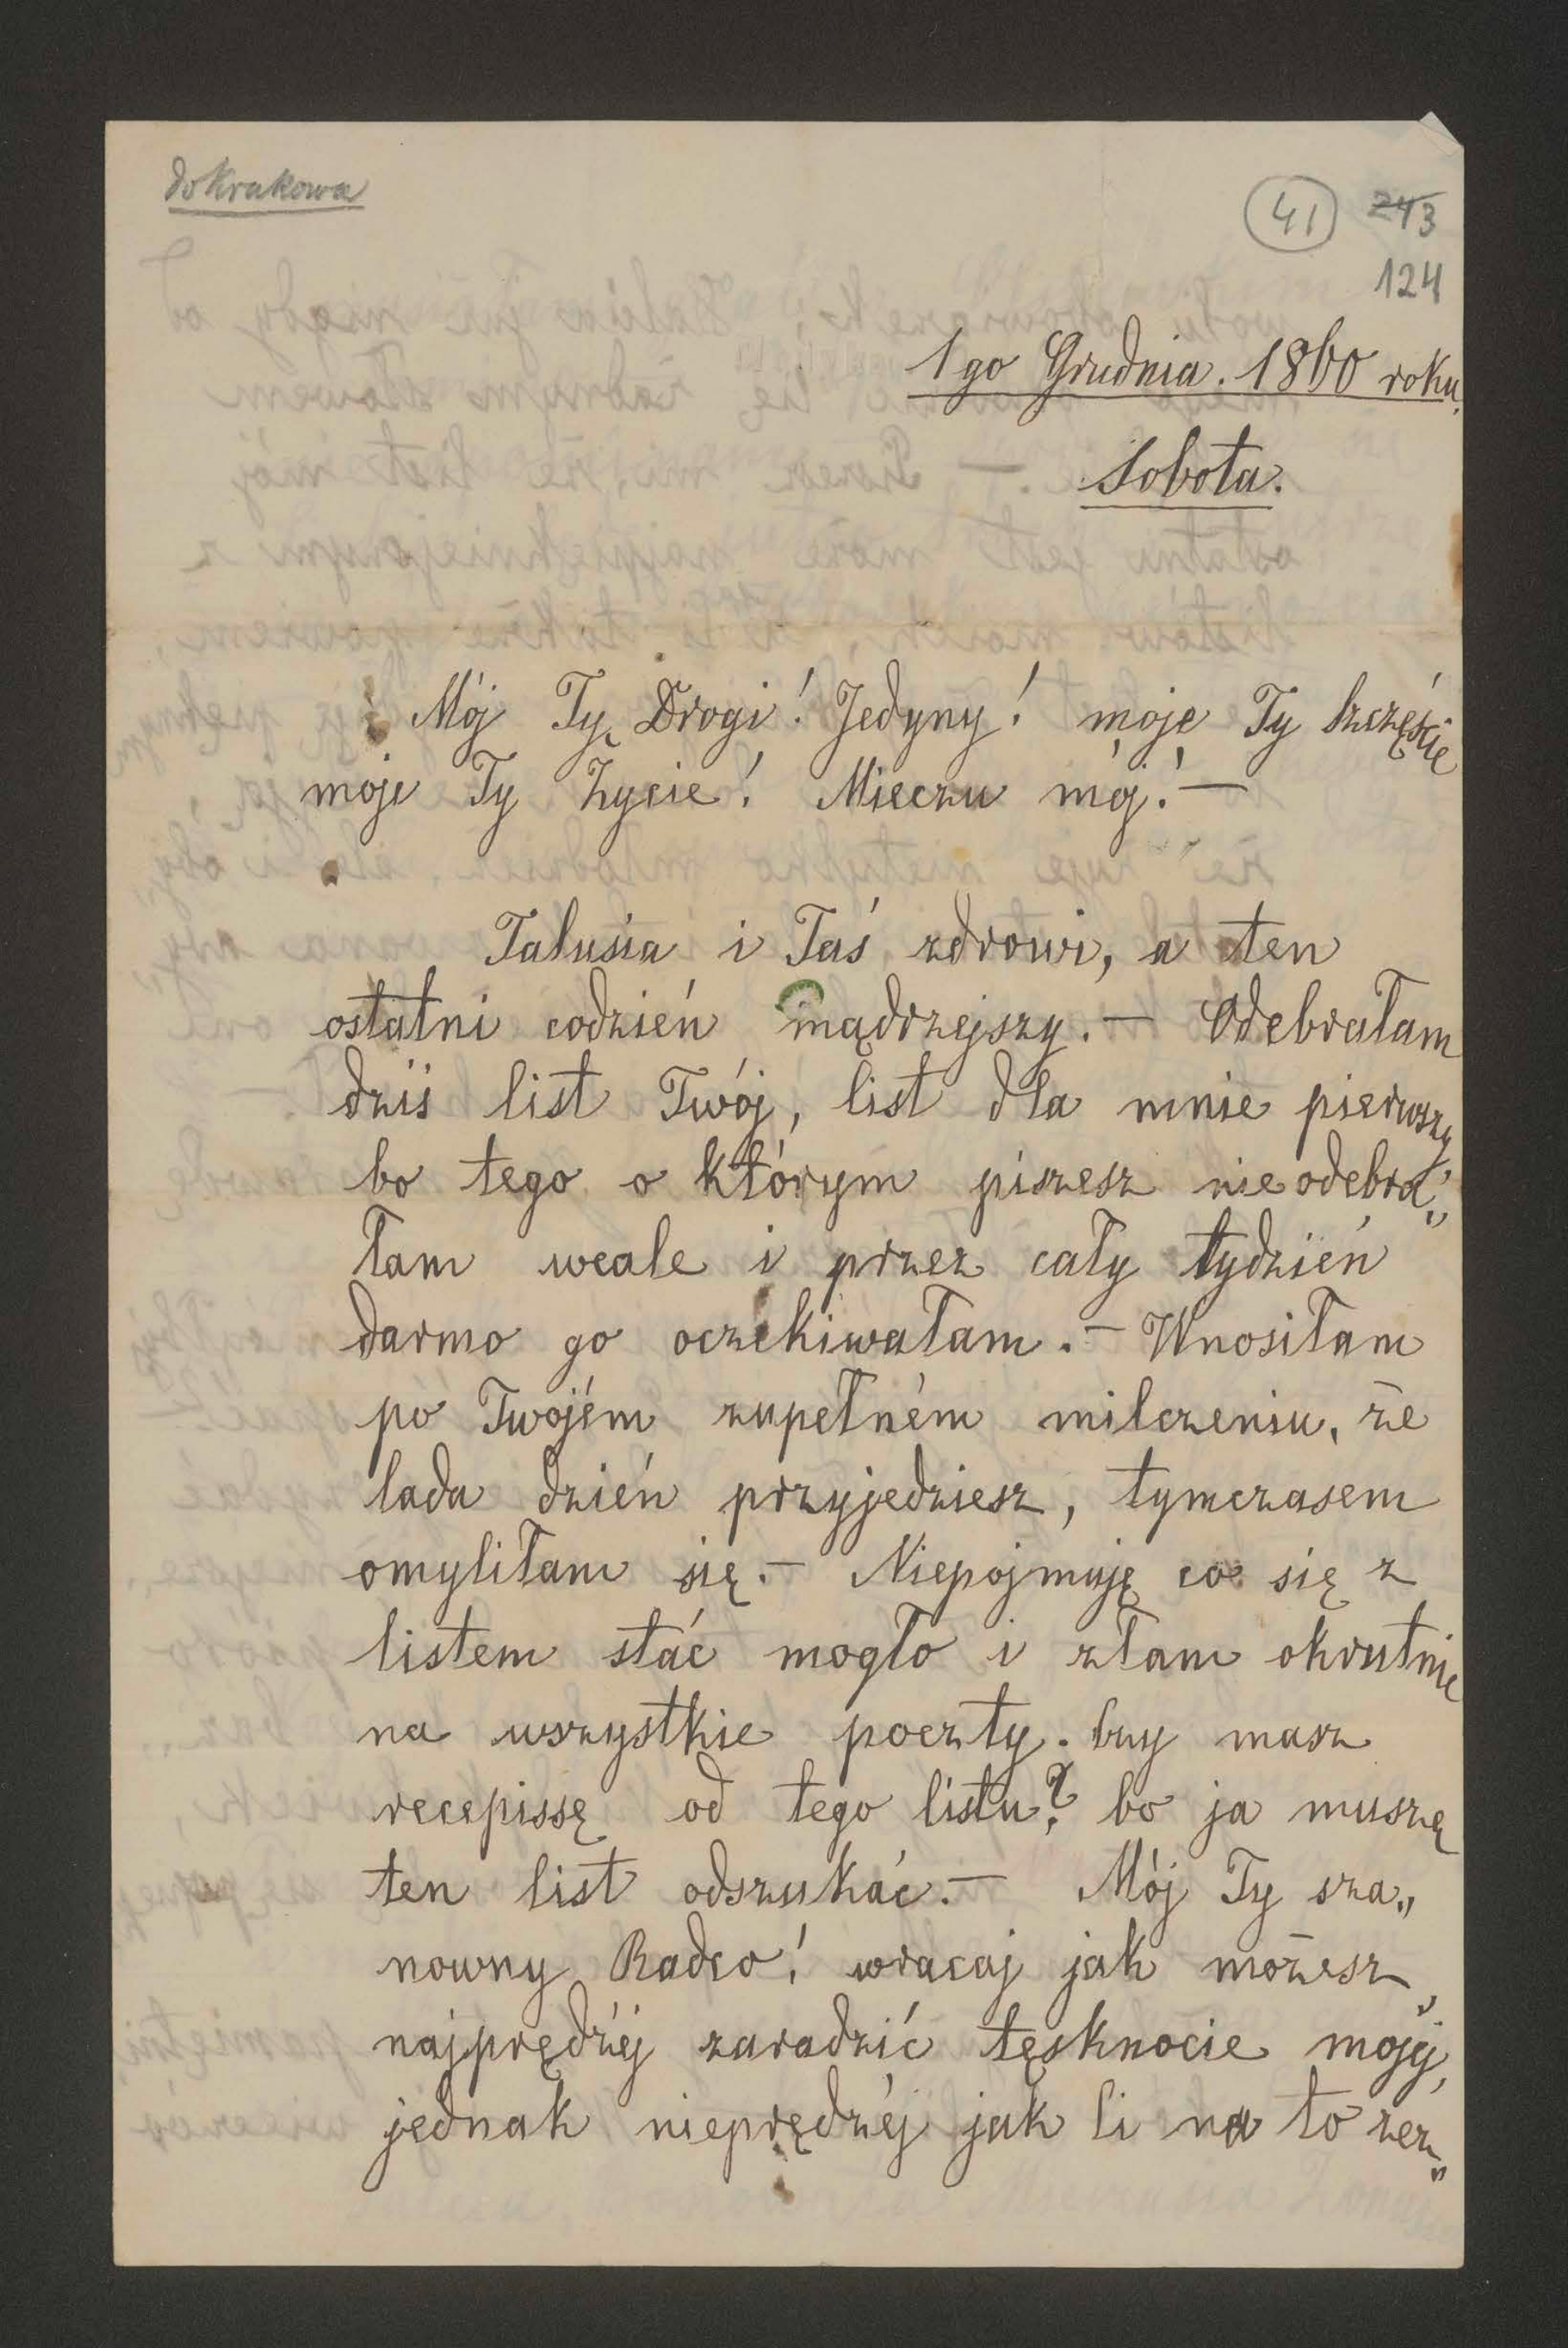 do Krakowa
41 243
124
1go Grudnia. 1860 roku.
Sobota.
Mój Ty Drogi! Jedyny! moje Ty Szczęście
moje Ty Życie! Mieczu mój! —
Talusia i Taś zdrowi, a ten
ostatni codzień mądrzejszy. — Odebrałam
dziś list Twój, list dla mnie pierwszy,
bo tego o którym piszesz nie odebra„
łam wcale i przez cały tydzień
darmo go oczekiwałam. — Wnosiłam
po Twojém zupełném milczeniu, że
lada dzień przyjedziesz, tymczasem
omyliłam się. — Niepojmuję co się z
listem stać mogło i złam okrutnie
na wszystkie poczty. Czy masz
recepissę od tego listu? bo ja muszę
ten list odszukać. — Mój Ty sza„
nowny Radco! wracaj jak możesz
najprędzéj zaradzić tęsknocie mojéj,
jednak nieprędzéj jak Ci na to zez„